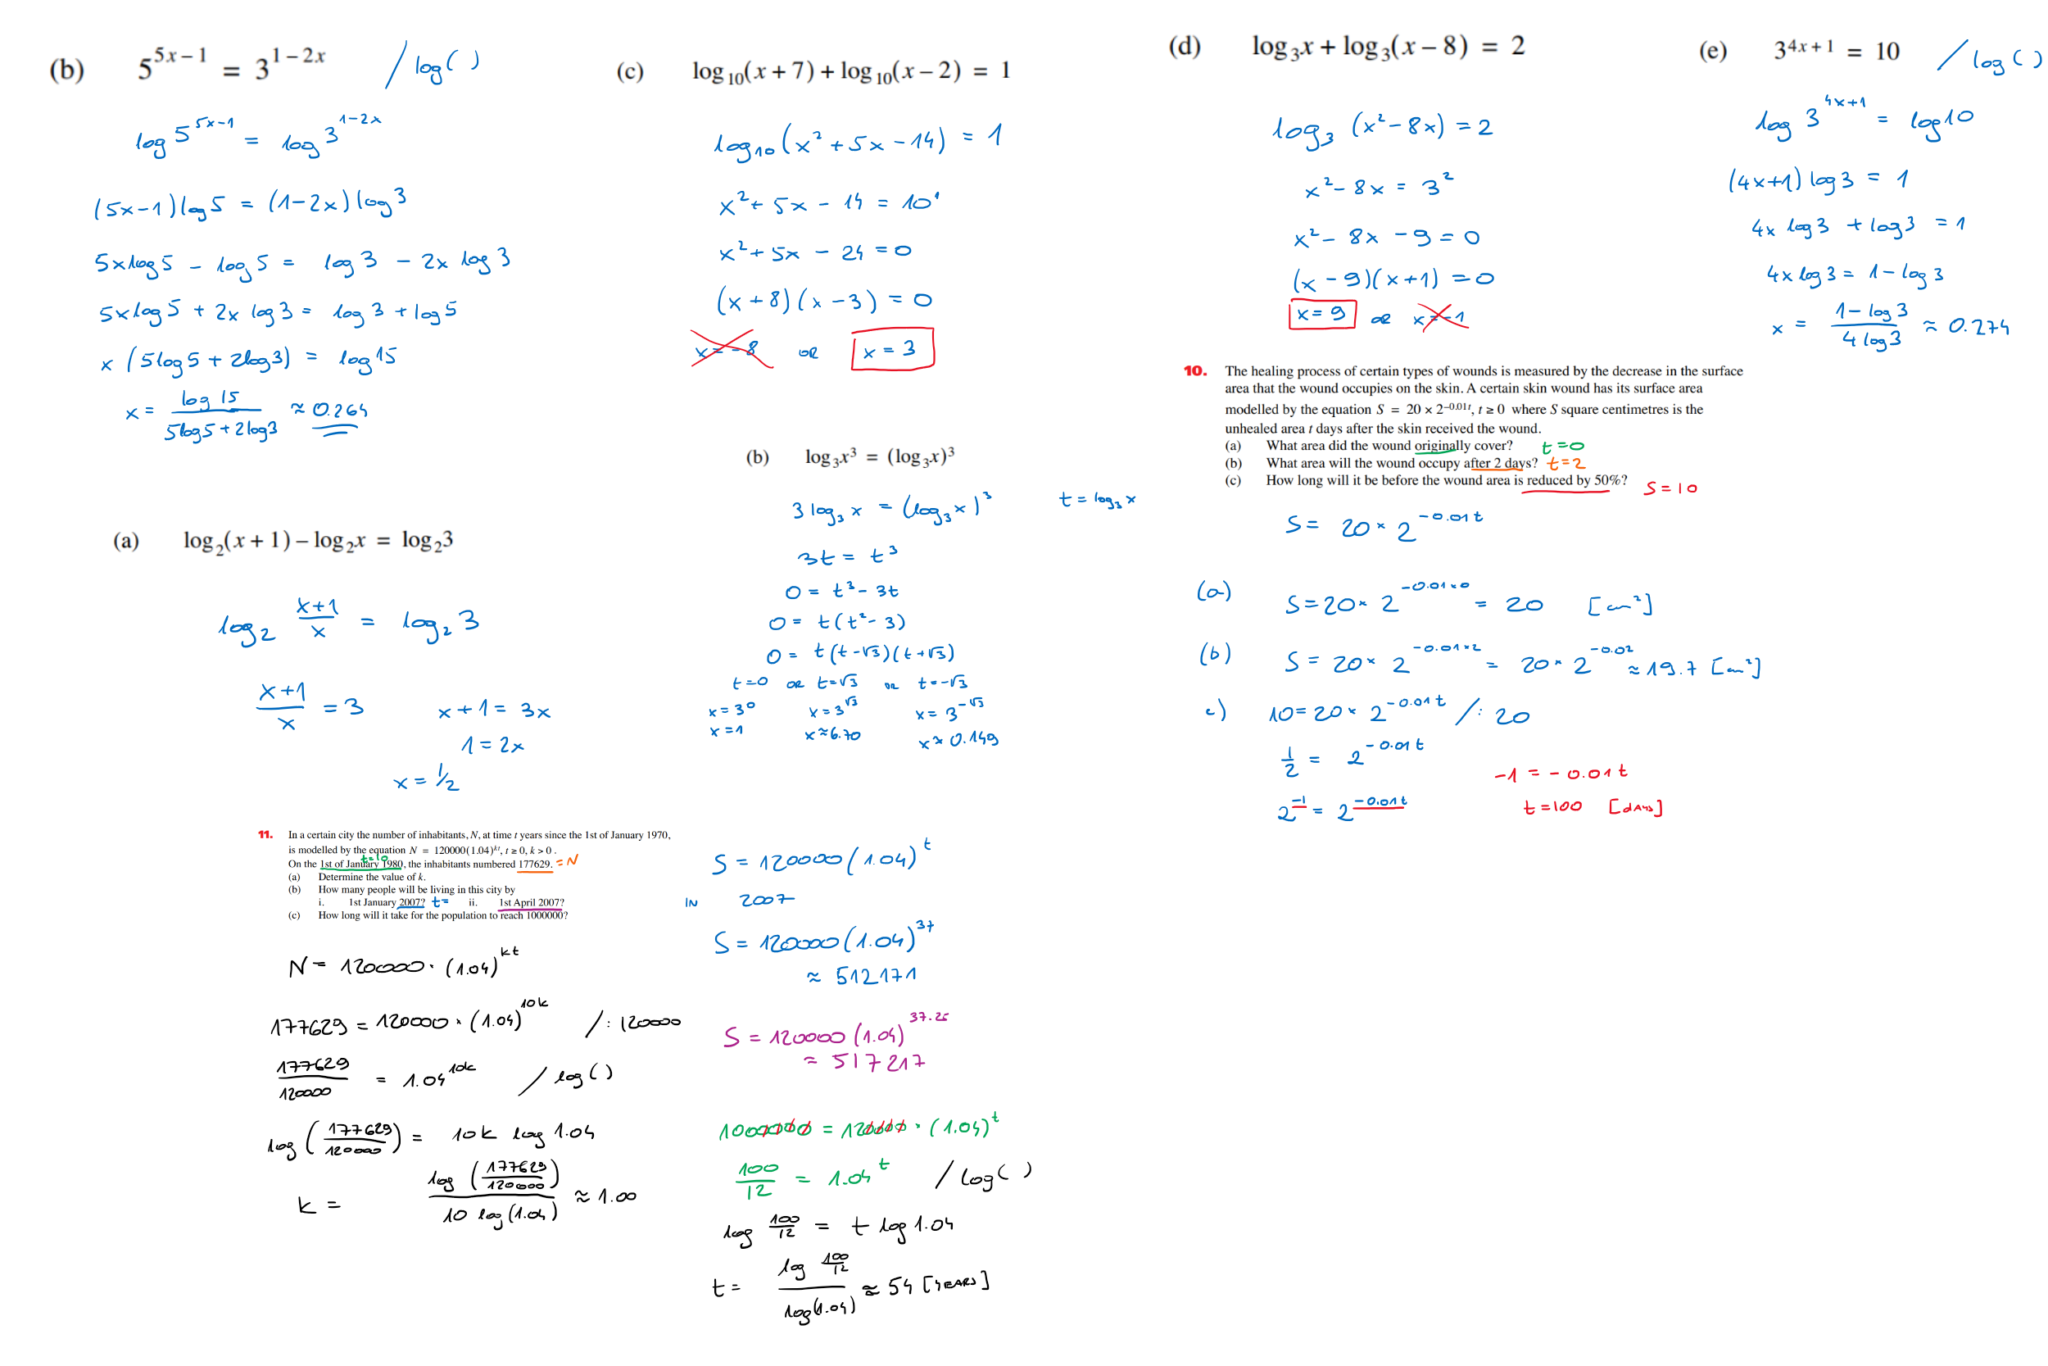 (b) 5^{5x-1} = 3^{1-2x} / log( )
log 5^{5x-1} = log 3^{1-2x}
(5x-1) log 5 = (1-2x) log 3
5x log 5 - log 5 = log 3 - 2x log 3
5x log 5 + 2x log 3 = log 3 + log 5
x (5 log 5 + 2 log 3) = log 15
x = \frac{log 15}{5 log 5 + 2 log 3} ≈ 0.264
(a) log_2(x + 1) - log_2 x = log_2 3
log_2 \frac{x+1}{x} = log_2 3
\frac{x+1}{x} = 3 x + 1 = 3x
1 = 2x
x = 1/2
(c) log_{10}(x + 7) + log_{10}(x - 2) = 1
log_{10} (x^2 + 5x - 14) = 1
x^2 + 5x - 14 = 10^1
x^2 + 5x - 24 = 0
(x + 8)(x - 3) = 0
x = -8 OR x = 3
(b) log_3 x^3 = (log_3 x)^3
3 log_3 x = (log_3 x)^3 t = log_3 x
3t = t^3
0 = t^3 - 3t
0 = t(t^2 - 3)
0 = t(t - √3)(t + √3)
t = 0 OR t = √3 OR t = -√3
x = 3^0 x = 3^{√3} x = 3^{-√3}
x = 1 x ≈ 6.70 x ≈ 0.149
(d) log_3 x + log_3(x - 8) = 2
log_3 (x^2 - 8x) = 2
x^2 - 8x = 3^2
x^2 - 8x - 9 = 0
(x - 9)(x + 1) = 0
x = 9 OR x = -1
(e) 3^{4x+1} = 10 / log( )
log 3^{4x+1} = log 10
(4x+1) log 3 = 1
4x log 3 + log 3 = 1
4x log 3 = 1 - log 3
x = \frac{1 - log 3}{4 log 3} ≈ 0.274
10. The healing process of certain types of wounds is measured by the decrease in the surface
area that the wound occupies on the skin. A certain skin wound has its surface area
modelled by the equation S = 20 × 2^{-0.01t}, t ≥ 0 where S square centimetres is the
unhealed area t days after the skin received the wound.
(a) What area did the wound originally cover? t = 0
(b) What area will the wound occupy after 2 days? t = 2
(c) How long will it be before the wound area is reduced by 50%? S = 10
S = 20 × 2^{-0.01t}
(a) S = 20 × 2^{-0.01×0} = 20 [cm^2]
(b) S = 20 × 2^{-0.01×2} = 20 × 2^{-0.02} ≈ 19.7 [cm^2]
c) 10 = 20 × 2^{-0.01t} / : 20
\frac{1}{2} = 2^{-0.01t}
2^{-1} = 2^{-0.01t}
-1 = -0.01t
t = 100 [DAYS]
11. In a certain city the number of inhabitants, N, at time t years since the 1st of January 1970,
is modelled by the equation N = 120000(1.04)^{kt}, t ≥ 0, k > 0.
t=10
On the 1st of January 1980, the inhabitants numbered 177629. = N
(a) Determine the value of k.
(b) How many people will be living in this city by
i. 1st January 2007? t= ii. 1st April 2007?
(c) How long will it take for the population to reach 1000000?
N = 120000 · (1.04)^{kt}
177629 = 120000 · (1.04)^{10k} / : 120000
\frac{177629}{120000} = 1.04^{10k} / log( )
log (\frac{177629}{120000}) = 10k log 1.04
k = \frac{log (\frac{177629}{120000})}{10 log (1.04)} ≈ 1.00
S = 120000 (1.04)^t
IN 2007
S = 120000 (1.04)^{37}
≈ 512171
S = 120000 (1.04)^{37.25}
= 517217
1000000 = 120000 · (1.04)^t
\frac{100}{12} = 1.04^t / log( )
log \frac{100}{12} = t log 1.04
t = \frac{log \frac{100}{12}}{log(1.04)} ≈ 54 [YEARS]